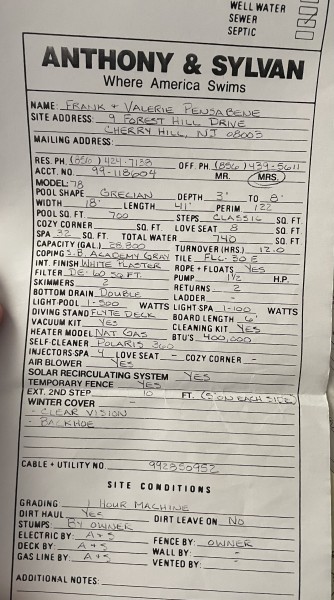 WELL WATER
SEWER
SEPTIC
ANTHONY & SYLVAN
Where America Swims
NAME: FRANK + VALERIE PENSABENE
SITE ADDRESS: 9 FOREST HILL DRIVE
CHERRY HILL, NJ 08003
MAILING ADDRESS:
RES. PH. (856) 424-7133 OFF. PH. (856) 439-5611
ACCT. NO. 99-118604 MR. MRS.
MODEL: 78
POOL SHAPE GRECIAN DEPTH 3' TO 8'
WIDTH 18' LENGTH 41' PERIM 122
POOL SQ. FT. 700 STEPS CLASSIC SQ. FT.
COZY CORNER SQ. FT. LOVE SEAT 8 SQ. FT.
SPA 32 SQ. FT. TOTAL WATER 740 SQ. FT.
CAPACITY (GAL.) 28800 TURNOVER (HRS.) 12.0
COPING S.B. ACADEMY GRAY TILE FLC-50 E
INT. FINISH WHITE PLASTER ROPE + FLOATS YES
FILTER DE-60 SQ. FT. PUMP 1½ H.P.
SKIMMERS 2 RETURNS 2
BOTTOM DRAIN DOUBLE LADDER -
LIGHT-POOL 1-500 WATTS LIGHT SPA 1-100 WATTS
DIVING STAND FLYTE DECK BOARD LENGTH 6'
VACUUM KIT YES CLEANING KIT YES
HEATER MODEL NAT GAS BTU'S 400,000
SELF-CLEANER POLARIS 360
INJECTORS SPA 4 LOVE SEAT - COZY CORNER -
AIR BLOWER YES
SOLAR RECIRCULATING SYSTEM YES
TEMPORARY FENCE YES
EXT. 2ND STEP 10 FT. (5' ON EACH SIDE)
WINTER COVER -
- CLEAR VISION
- BACKHOE
CABLE + UTILITY NO. 992350952
SITE CONDITIONS
GRADING 1 HOUR MACHINE
DIRT HAUL YES DIRT LEAVE ON NO
STUMPS: BY OWNER
ELECTRIC BY: A+S FENCE BY: OWNER
DECK BY: A+S WALL BY: -
GAS LINE BY: A+S VENTED BY: -
ADDITIONAL NOTES: